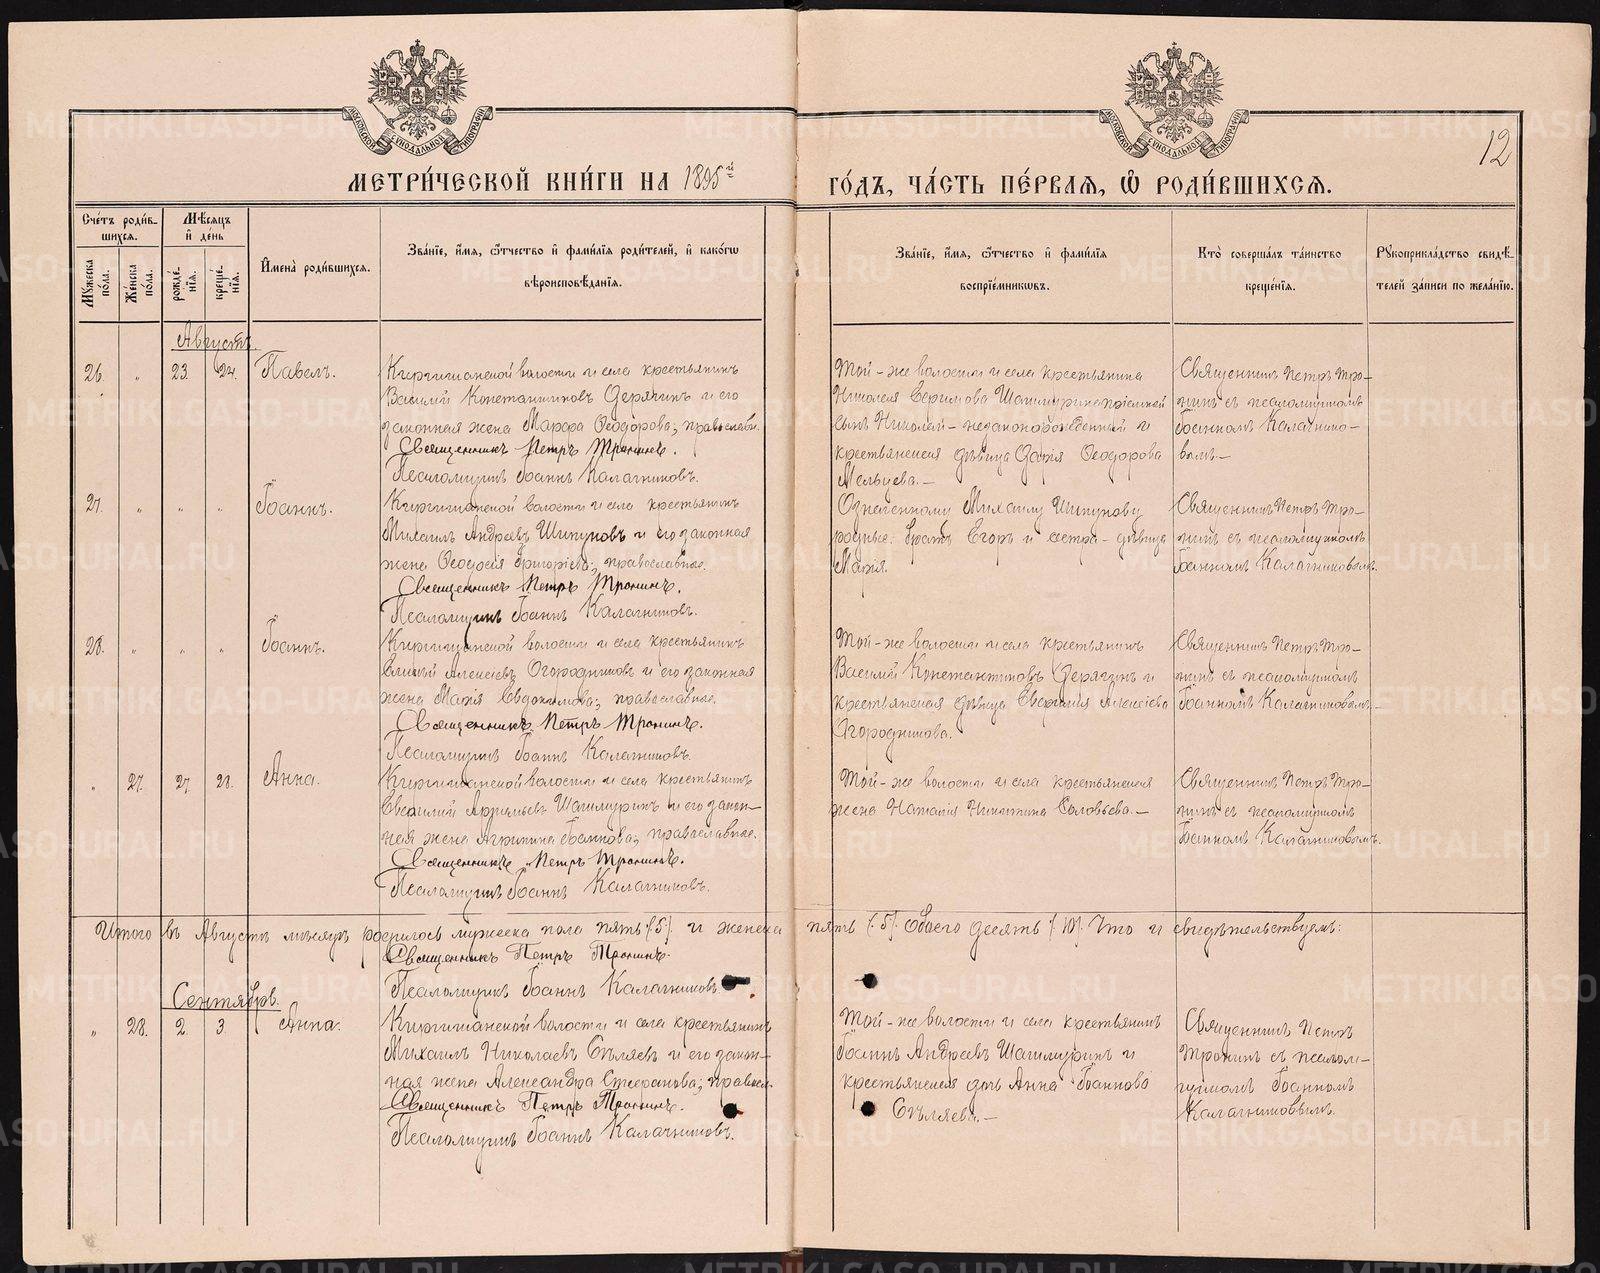 МОСКОВСКОЙ СѴНОДАЛЬНОЙ ТИПОГРАФІИ
МОСКОВСКОЙ СѴНОДАЛЬНОЙ ТИПОГРАФІИ
12
МЕТРИ́ЧЕСКОЙ КНИ́ГИ НА 1895й
ГО́ДЪ, ЧА́СТЬ ПЕ́РВАѦ, Ѡ РОДИ́ВШИХСѦ.
Сче́тъ роди́в-
шихсѧ.
Мѣ́сѧцъ
и де́нь
Мꙋжеска по́ла.
Же́нска по́ла.
рожде́нїѧ.
креще́нїѧ.
Имена̀ роди́вшихсѧ.
Зва́нїе, и́мѧ, ѻ́тчество и фами́лїѧ роди́телей, и како́гѡ
вѣроисповѣ́данїѧ.
Зва́нїе, и́мѧ, ѻ́тчество и фами́лїѧ
воспрїе́мникѡвъ.
Кто̀ соверша́лъ та́инство
креще́нїѧ.
Рꙋкоприкла́дство свидѣ́-
телей за́писи по жела́нїю.
Августъ.
26. „ 23. 24. Павелъ.
Киргишанской волости и села крестьянинъ
Василій Константиновъ Дерягинъ и его
законная жена Марѳа Ѳеодорова; православн.
Священникъ Петръ Тронинъ.
Псаломщикъ Іоаннъ Калачниковъ.
Той-же волости и села крестьянина
Николая Шашмурина пріемной
сынъ Николай - незаконорожденный и
крестьянская дѣвица Дарія Ѳеодорова
Мельцева.-
Священникъ Петръ Тро-
нинъ съ псаломщикомъ
Іоанномъ Калачнико-
вымъ.-
27. „ „ „ Іоаннъ.
Киргишанской волости и села крестьянинъ
Михаилъ Андреевъ Шипуновъ и его законная
жена Ѳеодосія Григорьева; православные.
Священникъ Петръ Тронинъ.
Псаломщикъ Іоаннъ Калачниковъ.
Означенному Михаилу Шипунову
родные: братъ Егоръ и сестра - дѣвица
Марія.
Священникъ Петръ Тро-
нинъ съ псаломщикомъ
Іоанномъ Калачниковымъ.
28. „ „ „ Іоаннъ.
Киргишанской волости и села крестьянинъ
Алексѣевъ Огородниковъ и его законная
жена Марія Евдокимова; православные.
Священникъ Петръ Тронинъ.
Псаломщикъ Іоаннъ Калачниковъ.
Той-же волости и села крестьянинъ
Василій Константиновъ Дерягинъ и
крестьянская дѣвица Алексѣева
Огородникова.
Священникъ Петръ Тро-
нинъ съ псаломщикомъ
Іоанномъ Калачниковымъ.
„ 27. 27. 28. Анна.
Киргишанской волости и села крестьянинъ
Шашмуринъ и его закон-
ная жена Агрипина Іоаннова; православные.
Священникъ Петръ Тронинъ.
Псаломщикъ Іоаннъ Калачниковъ.
Той-же волости и села крестьянская
жена Наталія Никитина Соловьева.-
Священникъ Петръ Тро-
нинъ съ псаломщикомъ
Іоанномъ Калачниковымъ.
Итого въ Августѣ мѣсяцѣ родилось мужеска пола пять (5) и женска пять (5) Обоего десять (10). Что и свидѣтельствуемъ:
Священникъ Петръ Тронинъ.
Псаломщикъ Іоаннъ Калачниковъ.
Сентябрь.
„ 28. 2. 3. Анна.
Киргишанской волости и села крестьянинъ
Михаилъ Николаевъ Бѣляевъ и его закон-
ная жена Александра Стефанова; правосл.
Священникъ Петръ Тронинъ.
Псаломщикъ Іоаннъ Калачниковъ.
Той-же волости и села крестьянинъ
Іоаннъ Андреевъ Шашмуринъ и
крестьянская дочь Анна Іоаннова
Бѣляева.-
Священникъ Петръ
Тронинъ съ псалом-
щикомъ Іоанномъ
Калачниковымъ.
METRIKI.GASO-URAL.RU